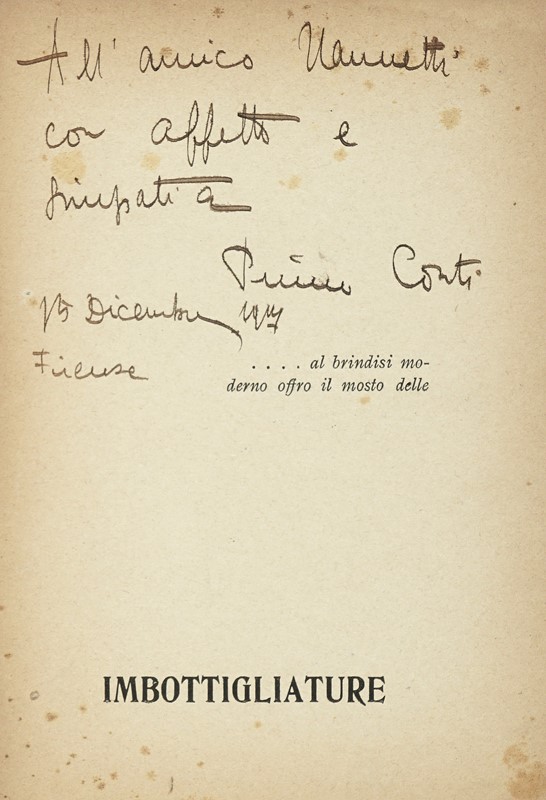 All' amico Nannetti
con affetto e
simpatia
Primo Conti
15 Dicembre 1917
Firenze
. . . . al brindisi mo-
derno offro il mosto delle
IMBOTTIGLIATURE